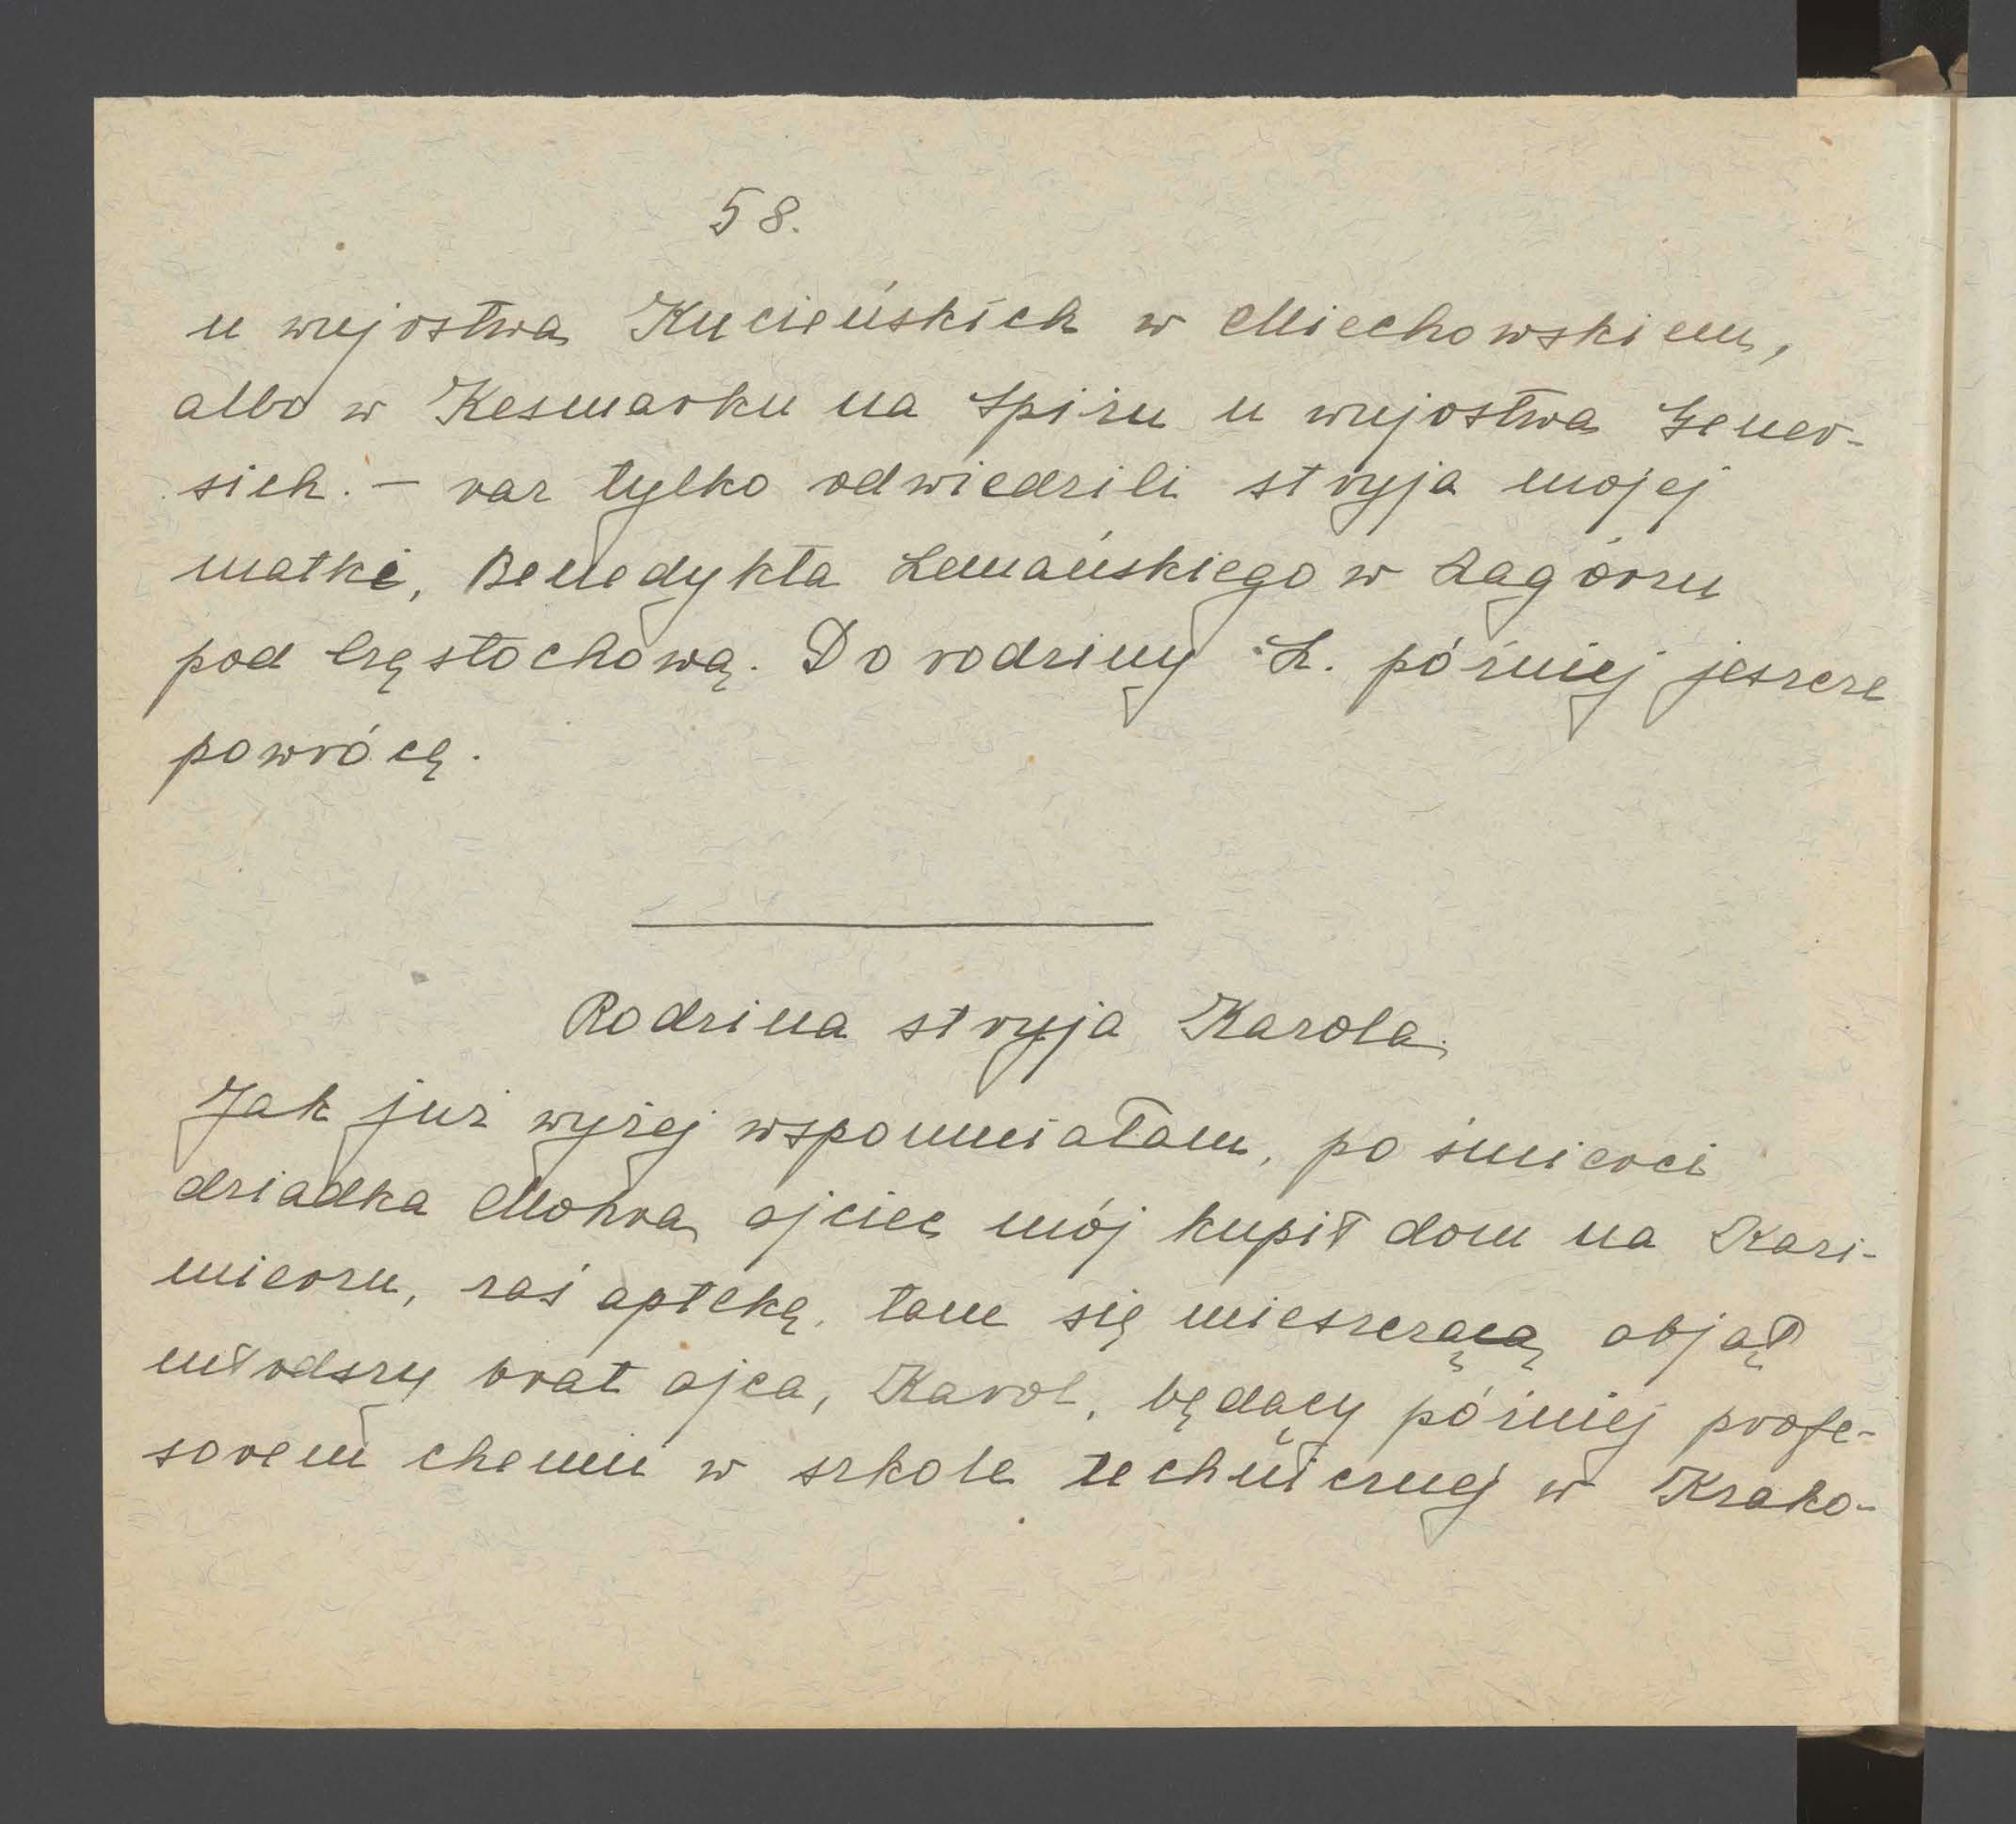 58.
u wujostwa Kucieńskich w Miechowskiem,
albo w Kesmarku na Spiżu u wujostwa Gener-
sich. – raz tylko odwiedzili stryja mojej
matki, Benedykta Lemańskiego w Zagórzu
pod Częstochową. Do rodziny L. później jeszcze
powrócę.
Rodzina stryja Karola.
Jak już wyżej wspomniałam, po śmierci
dziadka Mohra ojciec mój kupił dom na Kazi-
mierzu, zaś aptekę, tam się mieszczącą objął
młodszy brat ojca, Karol, będący później profe-
sorem chemii w szkole technicznej w Krako-